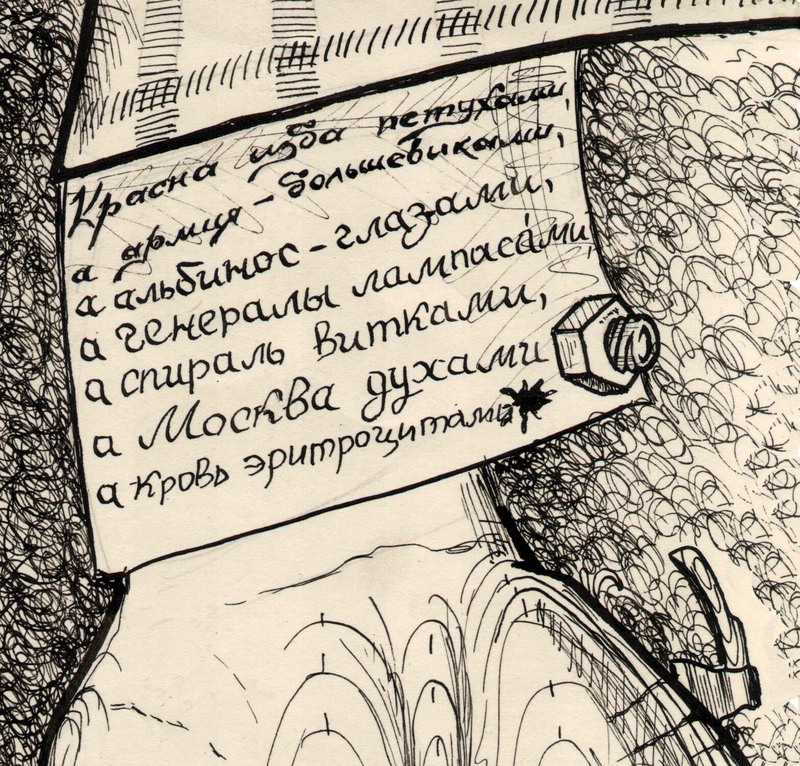 Красна изба петухами,
а армия - большевиками,
а альбинос - глазами,
а генералы лампаса́ми,
а спираль витками,
а Москва духами
а кровь эритроцитами